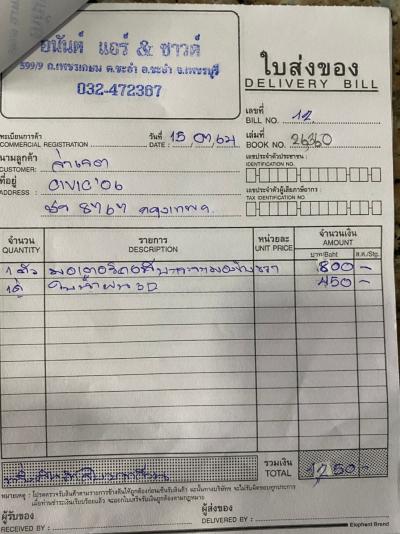 อนันต์ แอร์ & ซาวด์
599/9 ถ.เพชรเกษม ต.ชะอำ อ.ชะอำ จ.เพชรบุรี
032-472367
ใบส่งของ
DELIVERY BILL
เลขที่
BILL NO. 12
ทะเบียนการค้า
COMMERCIAL REGISTRATION
วันที่
DATE : 15, 07, 62
เล่มที่
BOOK NO. 26360
นามลูกค้า
CUSTOMER:
เลขประจำตัวประชาชน :
IDENTIFICATION NO.
ที่อยู่
ADDRESS : CIVIC'06
8767 กรุงเทพฯ
เลขประจำตัวผู้เสียภาษีอากร :
TAX IDENTIFICATION NO.
จำนวน
QUANTITY
รายการ
DESCRIPTION
หน่วยละ
UNIT PRICE
จำนวนเงิน
AMOUNT
บาท/Baht ส.ต./Stg.
1 ตัว 800 -
450 -
รวมเงิน
TOTAL 1,250 -
หมายเหตุ : โปรดตรวจรับสินค้าตามรายการข้างต้นให้ถูกต้องก่อนเซ็นรับสินค้า
ผู้รับของ
RECEIVED BY :
ผู้ส่งของ
DELIVERED BY :
Elephant Brand